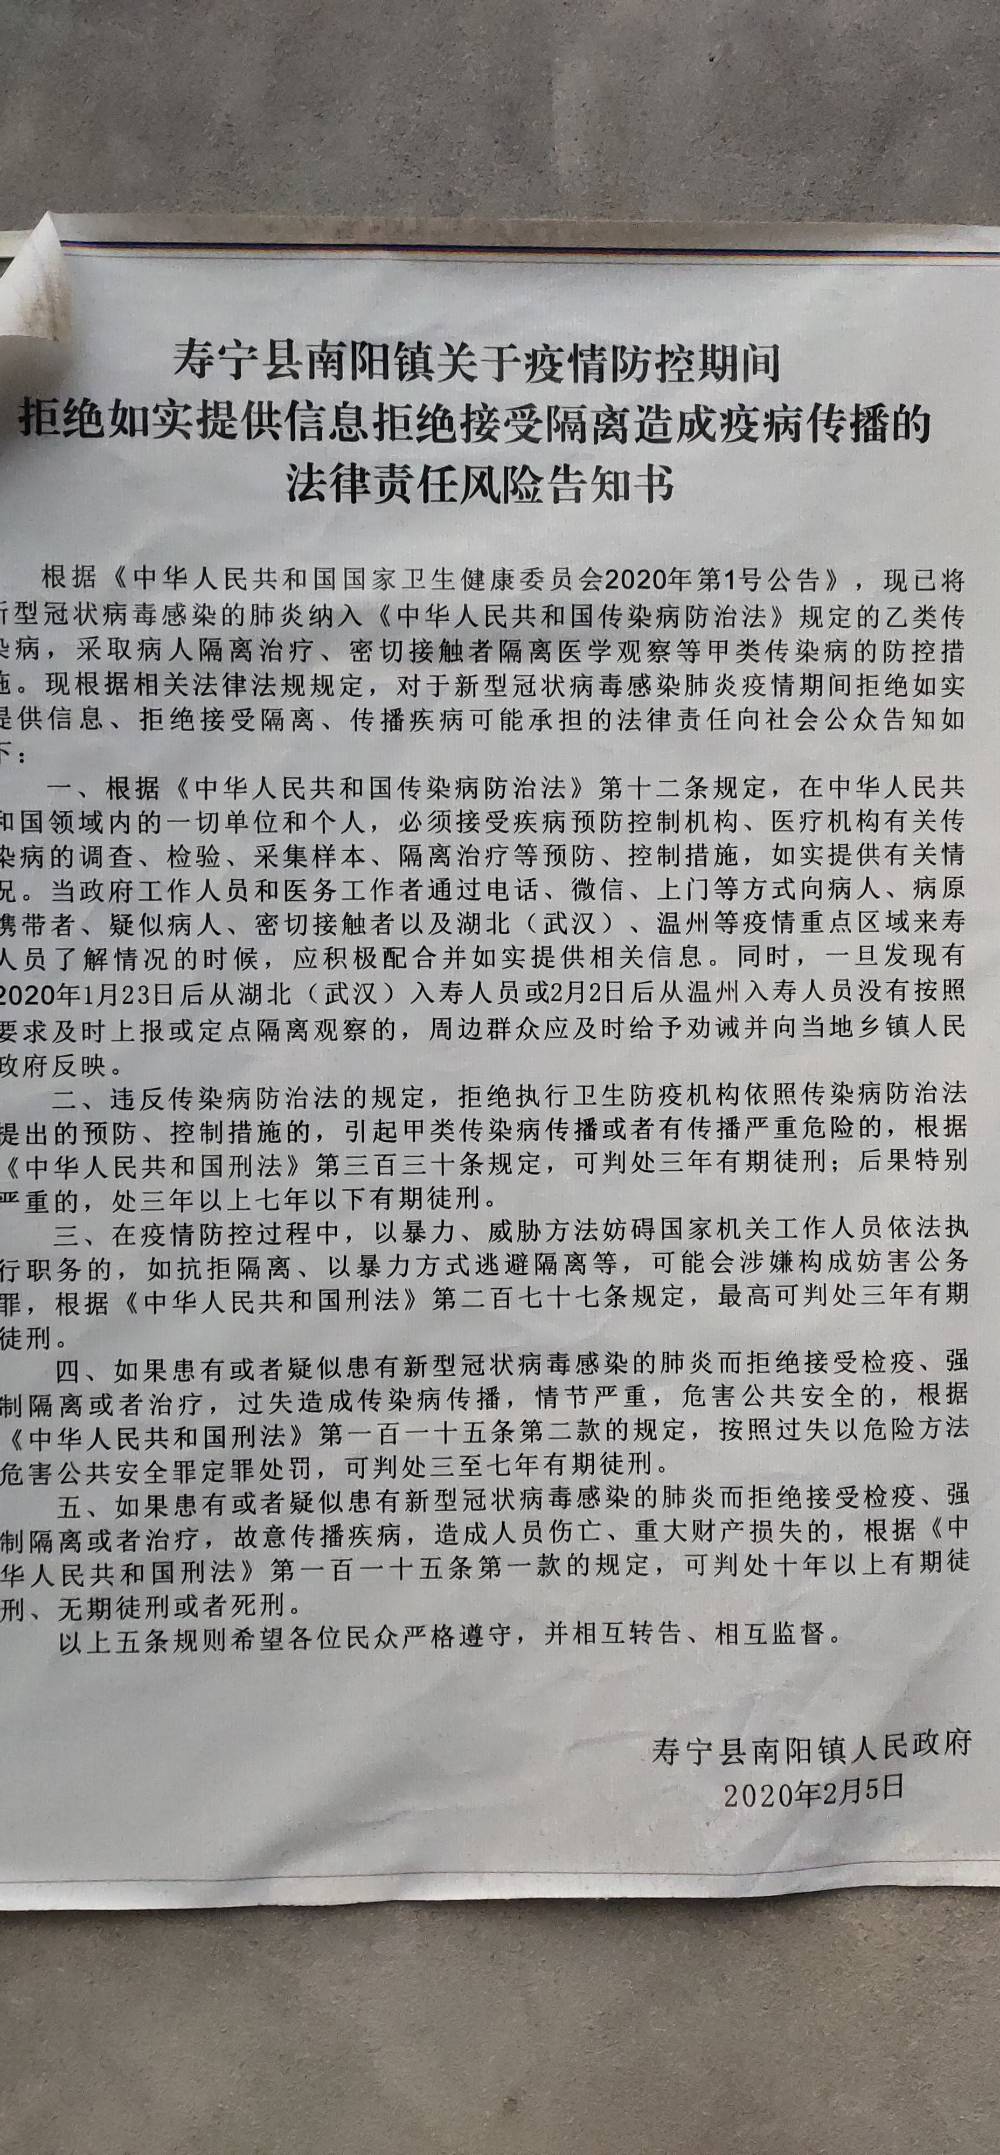 寿宁县南阳镇关于疫情防控期间
拒绝如实提供信息拒绝接受隔离造成疫病传播的
法律责任风险告知书
根据《中华人民共和国国家卫生健康委员会2020年第1号公告》，现已将
新型冠状病毒感染的肺炎纳入《中华人民共和国传染病防治法》规定的乙类传
染病，采取病人隔离治疗、密切接触者隔离医学观察等甲类传染病的防控措
施。现根据相关法律法规规定，对于新型冠状病毒感染肺炎疫情期间拒绝如实
提供信息、拒绝接受隔离、传播疾病可能承担的法律责任向社会公众告知如
下：
一、根据《中华人民共和国传染病防治法》第十二条规定，在中华人民共
和国领域内的一切单位和个人，必须接受疾病预防控制机构、医疗机构有关传
染病的调查、检验、采集样本、隔离治疗等预防、控制措施，如实提供有关情
况。当政府工作人员和医务工作者通过电话、微信、上门等方式向病人、病原
携带者、疑似病人、密切接触者以及湖北（武汉）、温州等疫情重点区域来寿
人员了解情况的时候，应积极配合并如实提供相关信息。同时，一旦发现有
2020年1月23日后从湖北（武汉）入寿人员或2月2日后从温州入寿人员没有按照
要求及时上报或定点隔离观察的，周边群众应及时给予劝诫并向当地乡镇人民
政府反映。
二、违反传染病防治法的规定，拒绝执行卫生防疫机构依照传染病防治法
提出的预防、控制措施的，引起甲类传染病传播或者有传播严重危险的，根据
《中华人民共和国刑法》第三百三十条规定，可判处三年有期徒刑；后果特别
严重的，处三年以上七年以下有期徒刑。
三、在疫情防控过程中，以暴力、威胁方法妨碍国家机关工作人员依法执
行职务的，如抗拒隔离、以暴力方式逃避隔离等，可能会涉嫌构成妨害公务
罪，根据《中华人民共和国刑法》第二百七十七条规定，最高可判处三年有期
徒刑。
四、如果患有或者疑似患有新型冠状病毒感染的肺炎而拒绝接受检疫、强
制隔离或者治疗，过失造成传染病传播，情节严重，危害公共安全的，根据
《中华人民共和国刑法》第一百一十五条第二款的规定，按照过失以危险方法
危害公共安全罪定罪处罚，可判处三至七年有期徒刑。
五、如果患有或者疑似患有新型冠状病毒感染的肺炎而拒绝接受检疫、强
制隔离或者治疗，故意传播疾病，造成人员伤亡、重大财产损失的，根据《中
华人民共和国刑法》第一百一十五条第一款的规定，可判处十年以上有期徒
刑、无期徒刑或者死刑。
以上五条规则希望各位民众严格遵守，并相互转告、相互监督。
寿宁县南阳镇人民政府
2020年2月5日